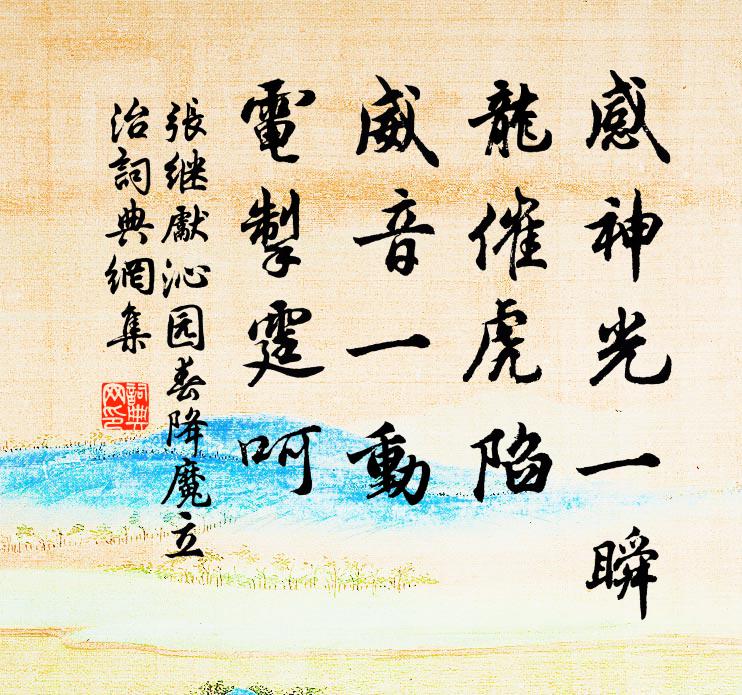 感神光一瞬
龍催虎陷
威音一動
電掣霆呵
張继獻沁园春降魔立
治詞典網集
詞典
网印